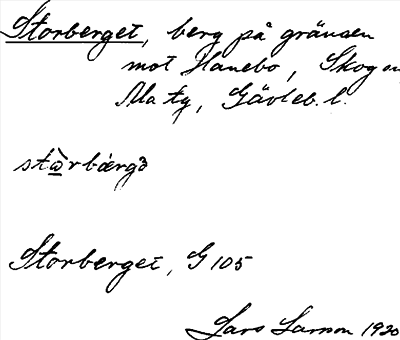 Storberget, berg på gränsen
mot Hanebo, Skog o
Ala tg, Gävleb. l.
Storberget, G 105
Lars Larsson 1920